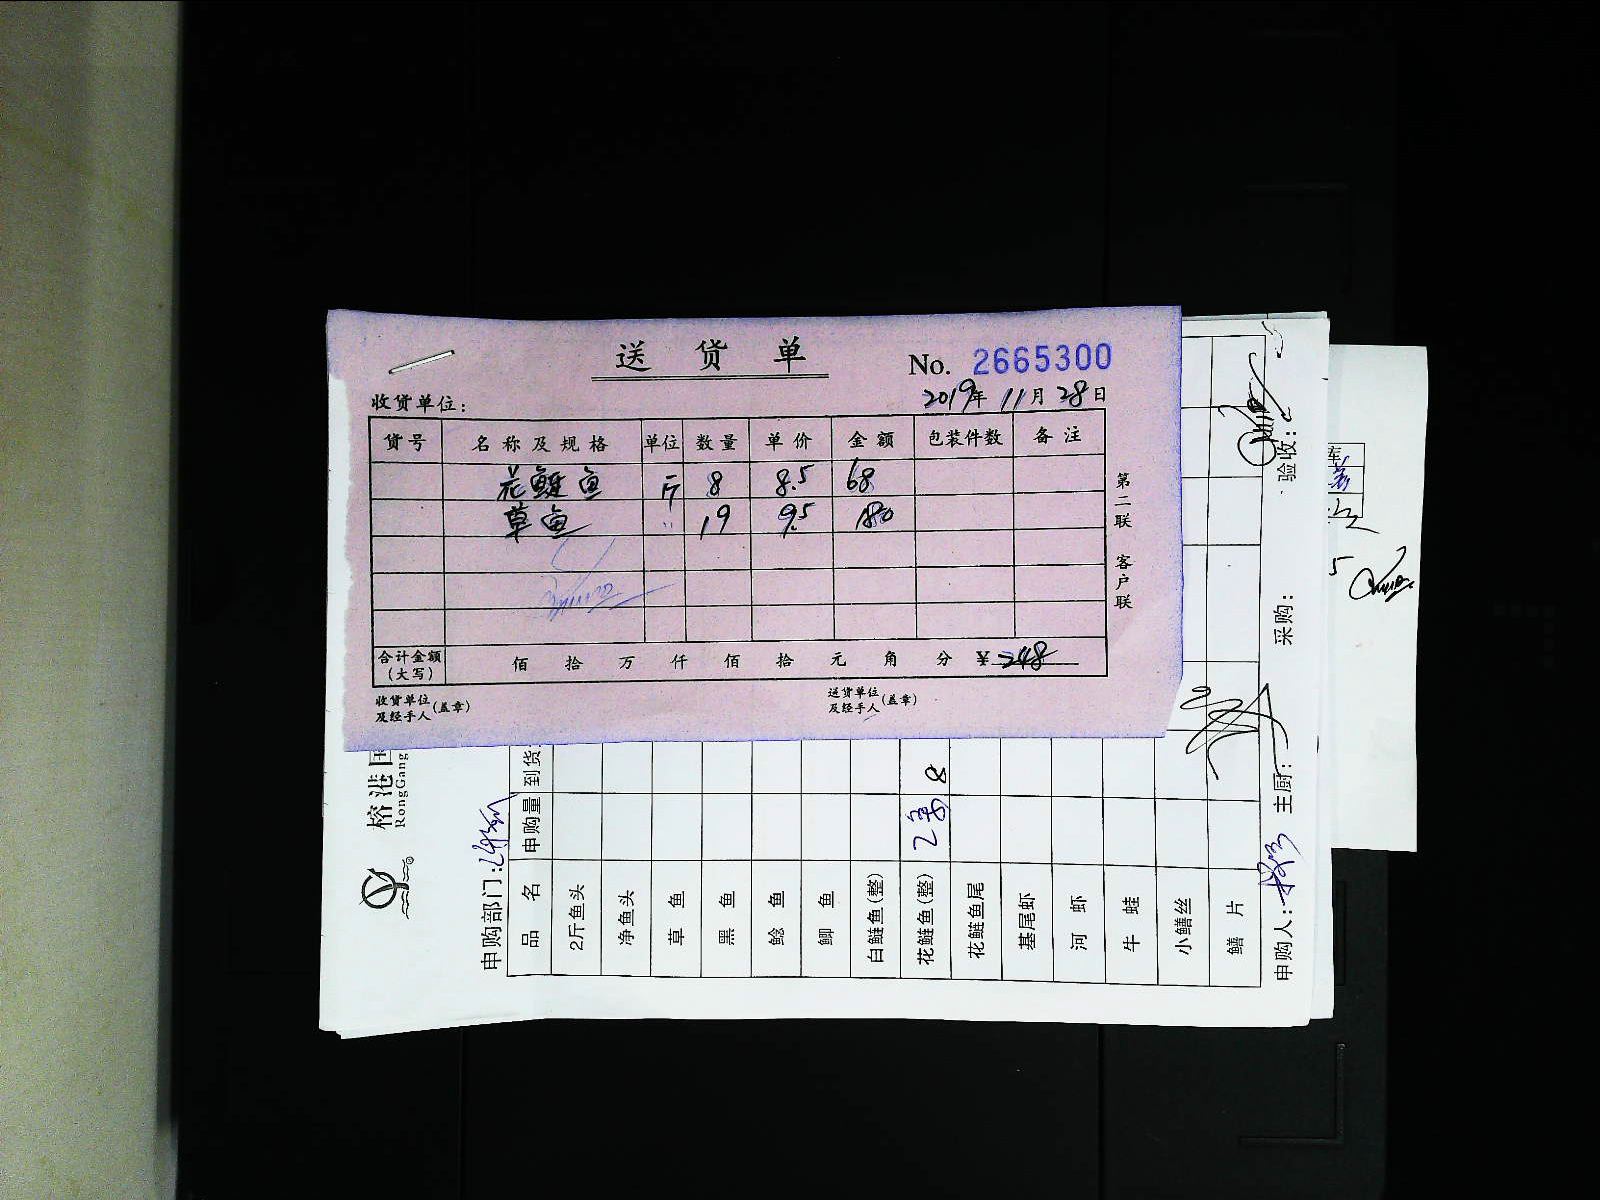 送货单
No. 2665300
收货单位:
2019年 11月 28日
货号 名称及规格 单位 数量 单价 金额 包装件数 备注
花鲢鱼 斤 8 8.5 68
草鱼 〃 19 9.5 180
合计金额(大写) 佰 拾 万 仟 佰 拾 元 角 分 ¥ 248
收货单位及经手人(盖章) 送货单位及经手人(盖章)
第二联 客户联
榕港
RongGang
申购部门:
品名 申购量 到货
2斤鱼头
净鱼头
草鱼
黑鱼
鲶鱼
鲫鱼
白鲢鱼(整)
花鲢鱼(整) 2条 8
花鲢鱼尾
基尾虾
河虾
牛蛙
小鳝丝
鳝片
申购人: 主厨: 采购: 验收:
库
5